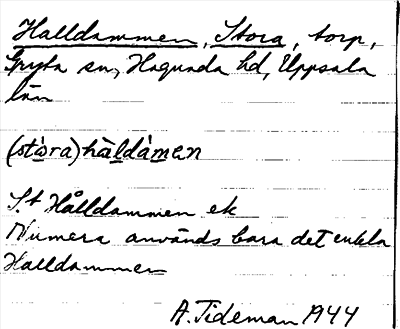 Halldammen, Stora, torp,
Gryta sn, Hagunda hd, Uppsala
län
(stòra) hàldàmen
St Hålldammen ek
Numera används bara det enkla
Halldammen
A. Tideman 1944